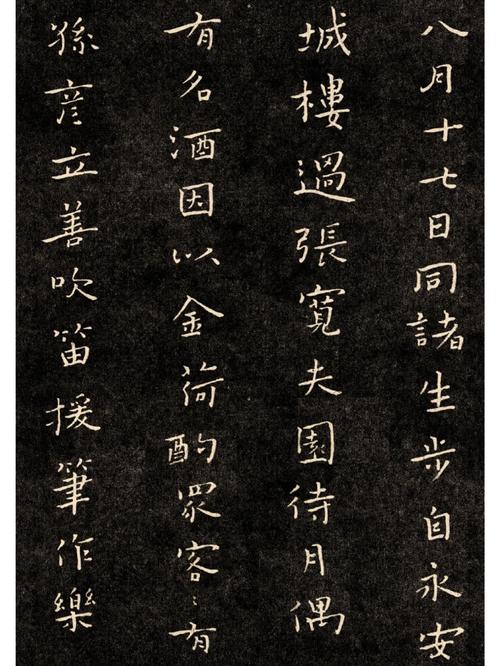 八月十七日同諸生步自永安
城樓過張寬夫園待月偶
有名酒因以金荷酌眾客〻有
孫彥立善吹笛援筆作樂